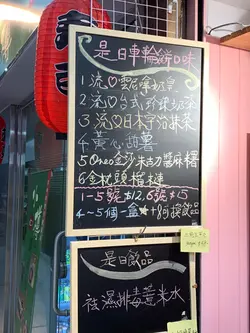 是日車輪餅口味
1 流♡雲呢拿奶皇
2 流♡台式珍珠奶茶
3 流♡日本宇治抹茶
4 黃心番薯
5 Oreo金沙朱古力醬麻糬
6 金枕頭榴槤
1-5號$12, 6號$15
4-5個一盒 +8可換飲品
是日飲品
祛濕排毒薏米水